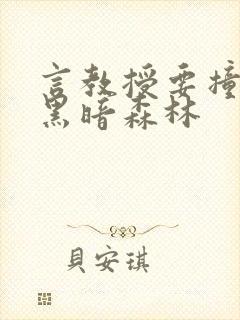 言教授要撞
黑暗森林
貝安琪